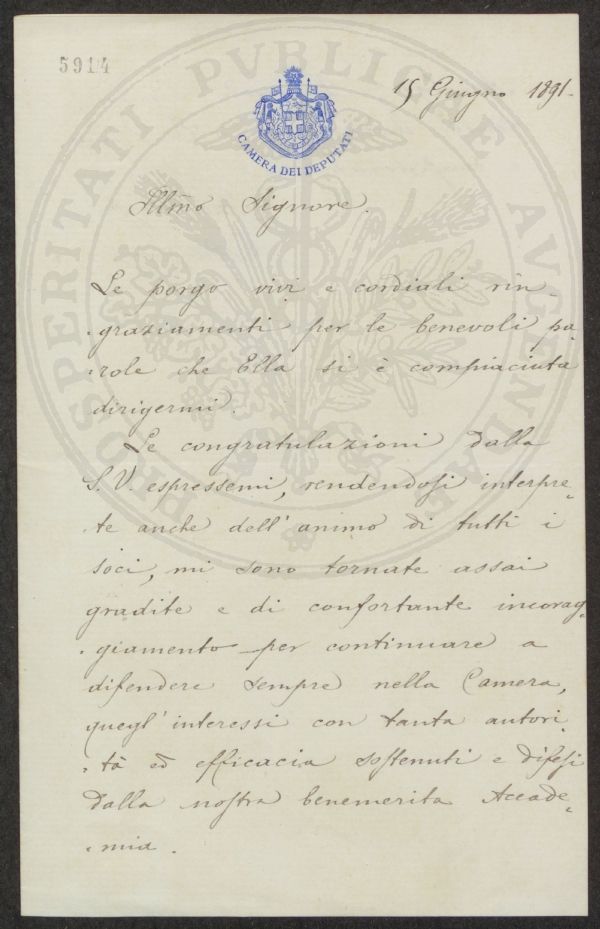 5914
15 Giugno 1891.
CAMERA DEI DEPUTATI
PROSPERITATI PVBLICAE AVGENDAE
Illm̃o Signore.
Le porgo vivi e cordiali rin-
-graziamenti per le benevoli pa-
-role che Ella si è compiaciuta
dirigermi.
Le congratulazioni dalla
S. V. espressemi, rendendosi interpre-
-te anche dell'animo di tutti i
soci, mi sono tornate assai
gradite e di confortante incorag-
-giamento per continuare a
difendere sempre nella Camera,
quegl'interessi con tanta autori-
-tà ed efficacia sostenuti e difesi
dalla nostra benemerita Accade-
-mia.